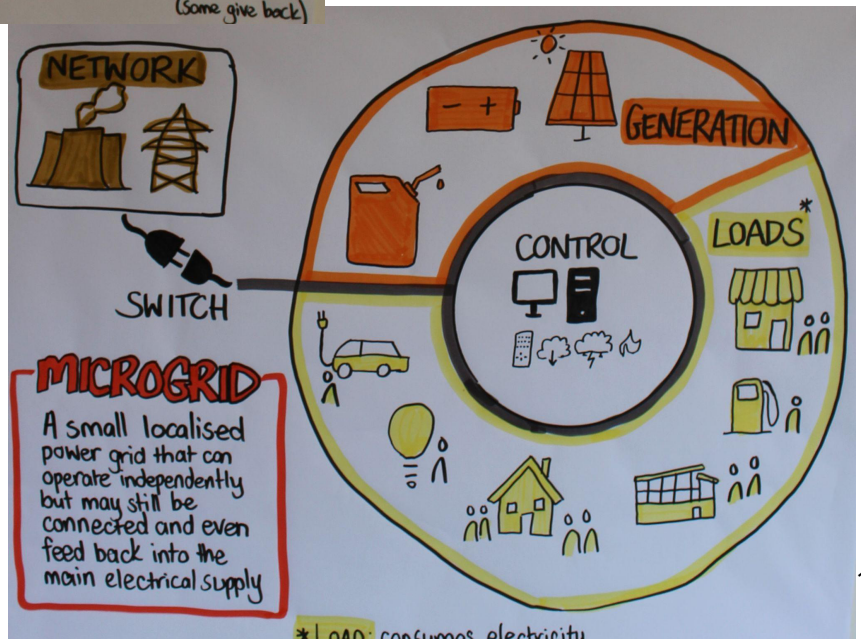 (some give back)
NETWORK
GENERATION
LOADS*
CONTROL
SWITCH
MICROGRID
A small localised
power grid that can
operate independently
but may still be
connected and even
feed back into the
main electrical supply
*LOAD: consumes electricity